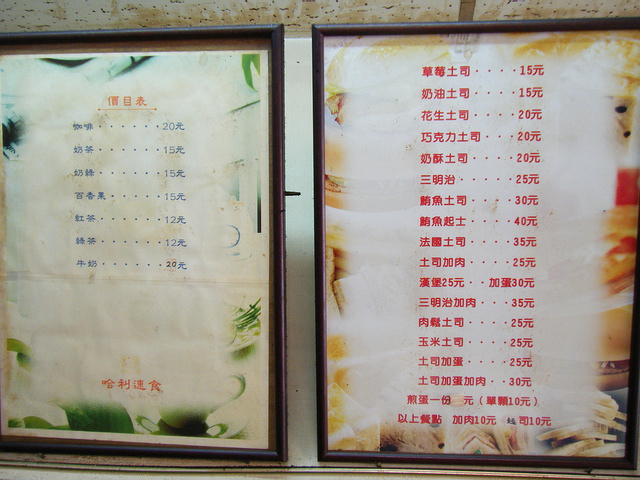 價目表
咖啡‧‧‧‧‧‧20元
奶茶‧‧‧‧‧‧15元
奶綠‧‧‧‧‧‧15元
百香果‧‧‧‧‧15元
紅茶‧‧‧‧‧‧12元
綠茶‧‧‧‧‧‧12元
牛奶‧‧‧‧‧‧20元
哈利速食
草莓土司‧‧‧‧15元
奶油土司‧‧‧‧15元
花生土司‧‧‧‧20元
巧克力土司‧‧‧20元
奶酥土司‧‧‧‧20元
三明治‧‧‧‧‧25元
鮪魚土司‧‧‧‧30元
鮪魚起士‧‧‧‧40元
法國土司‧‧‧‧35元
土司加肉‧‧‧‧25元
漢堡25元‧‧加蛋30元
三明治加肉‧‧‧35元
肉鬆土司‧‧‧‧25元
玉米土司‧‧‧‧25元
土司加蛋‧‧‧‧25元
土司加蛋加肉‧‧30元
煎蛋一份 元（單顆10元）
以上餐點 加肉10元 起司10元